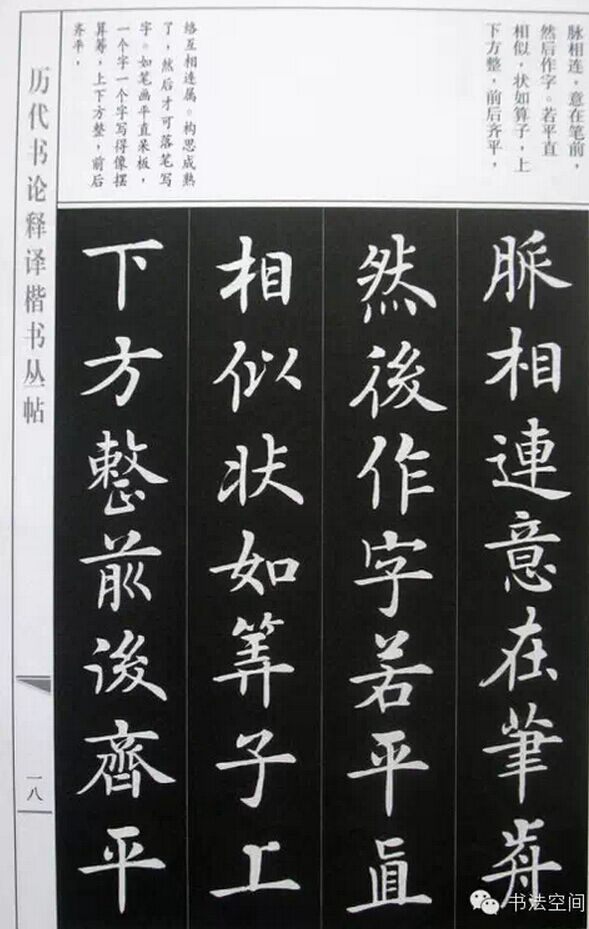 脉相连，意在笔前，
然后作字。若平直
相似，状如算子，上
下方整，前后齐平，
络互相连属。构思成熟
了，然后才可落笔写
字。如笔画平直呆板，
一个字一个字写得像摆
算筹，上下方整，前后
齐平，
脈相連意在筆歬
然後作字若平直
相似狀如筭子上
下方整前後齊平
历代书论释译楷书丛帖
一八
书法空间